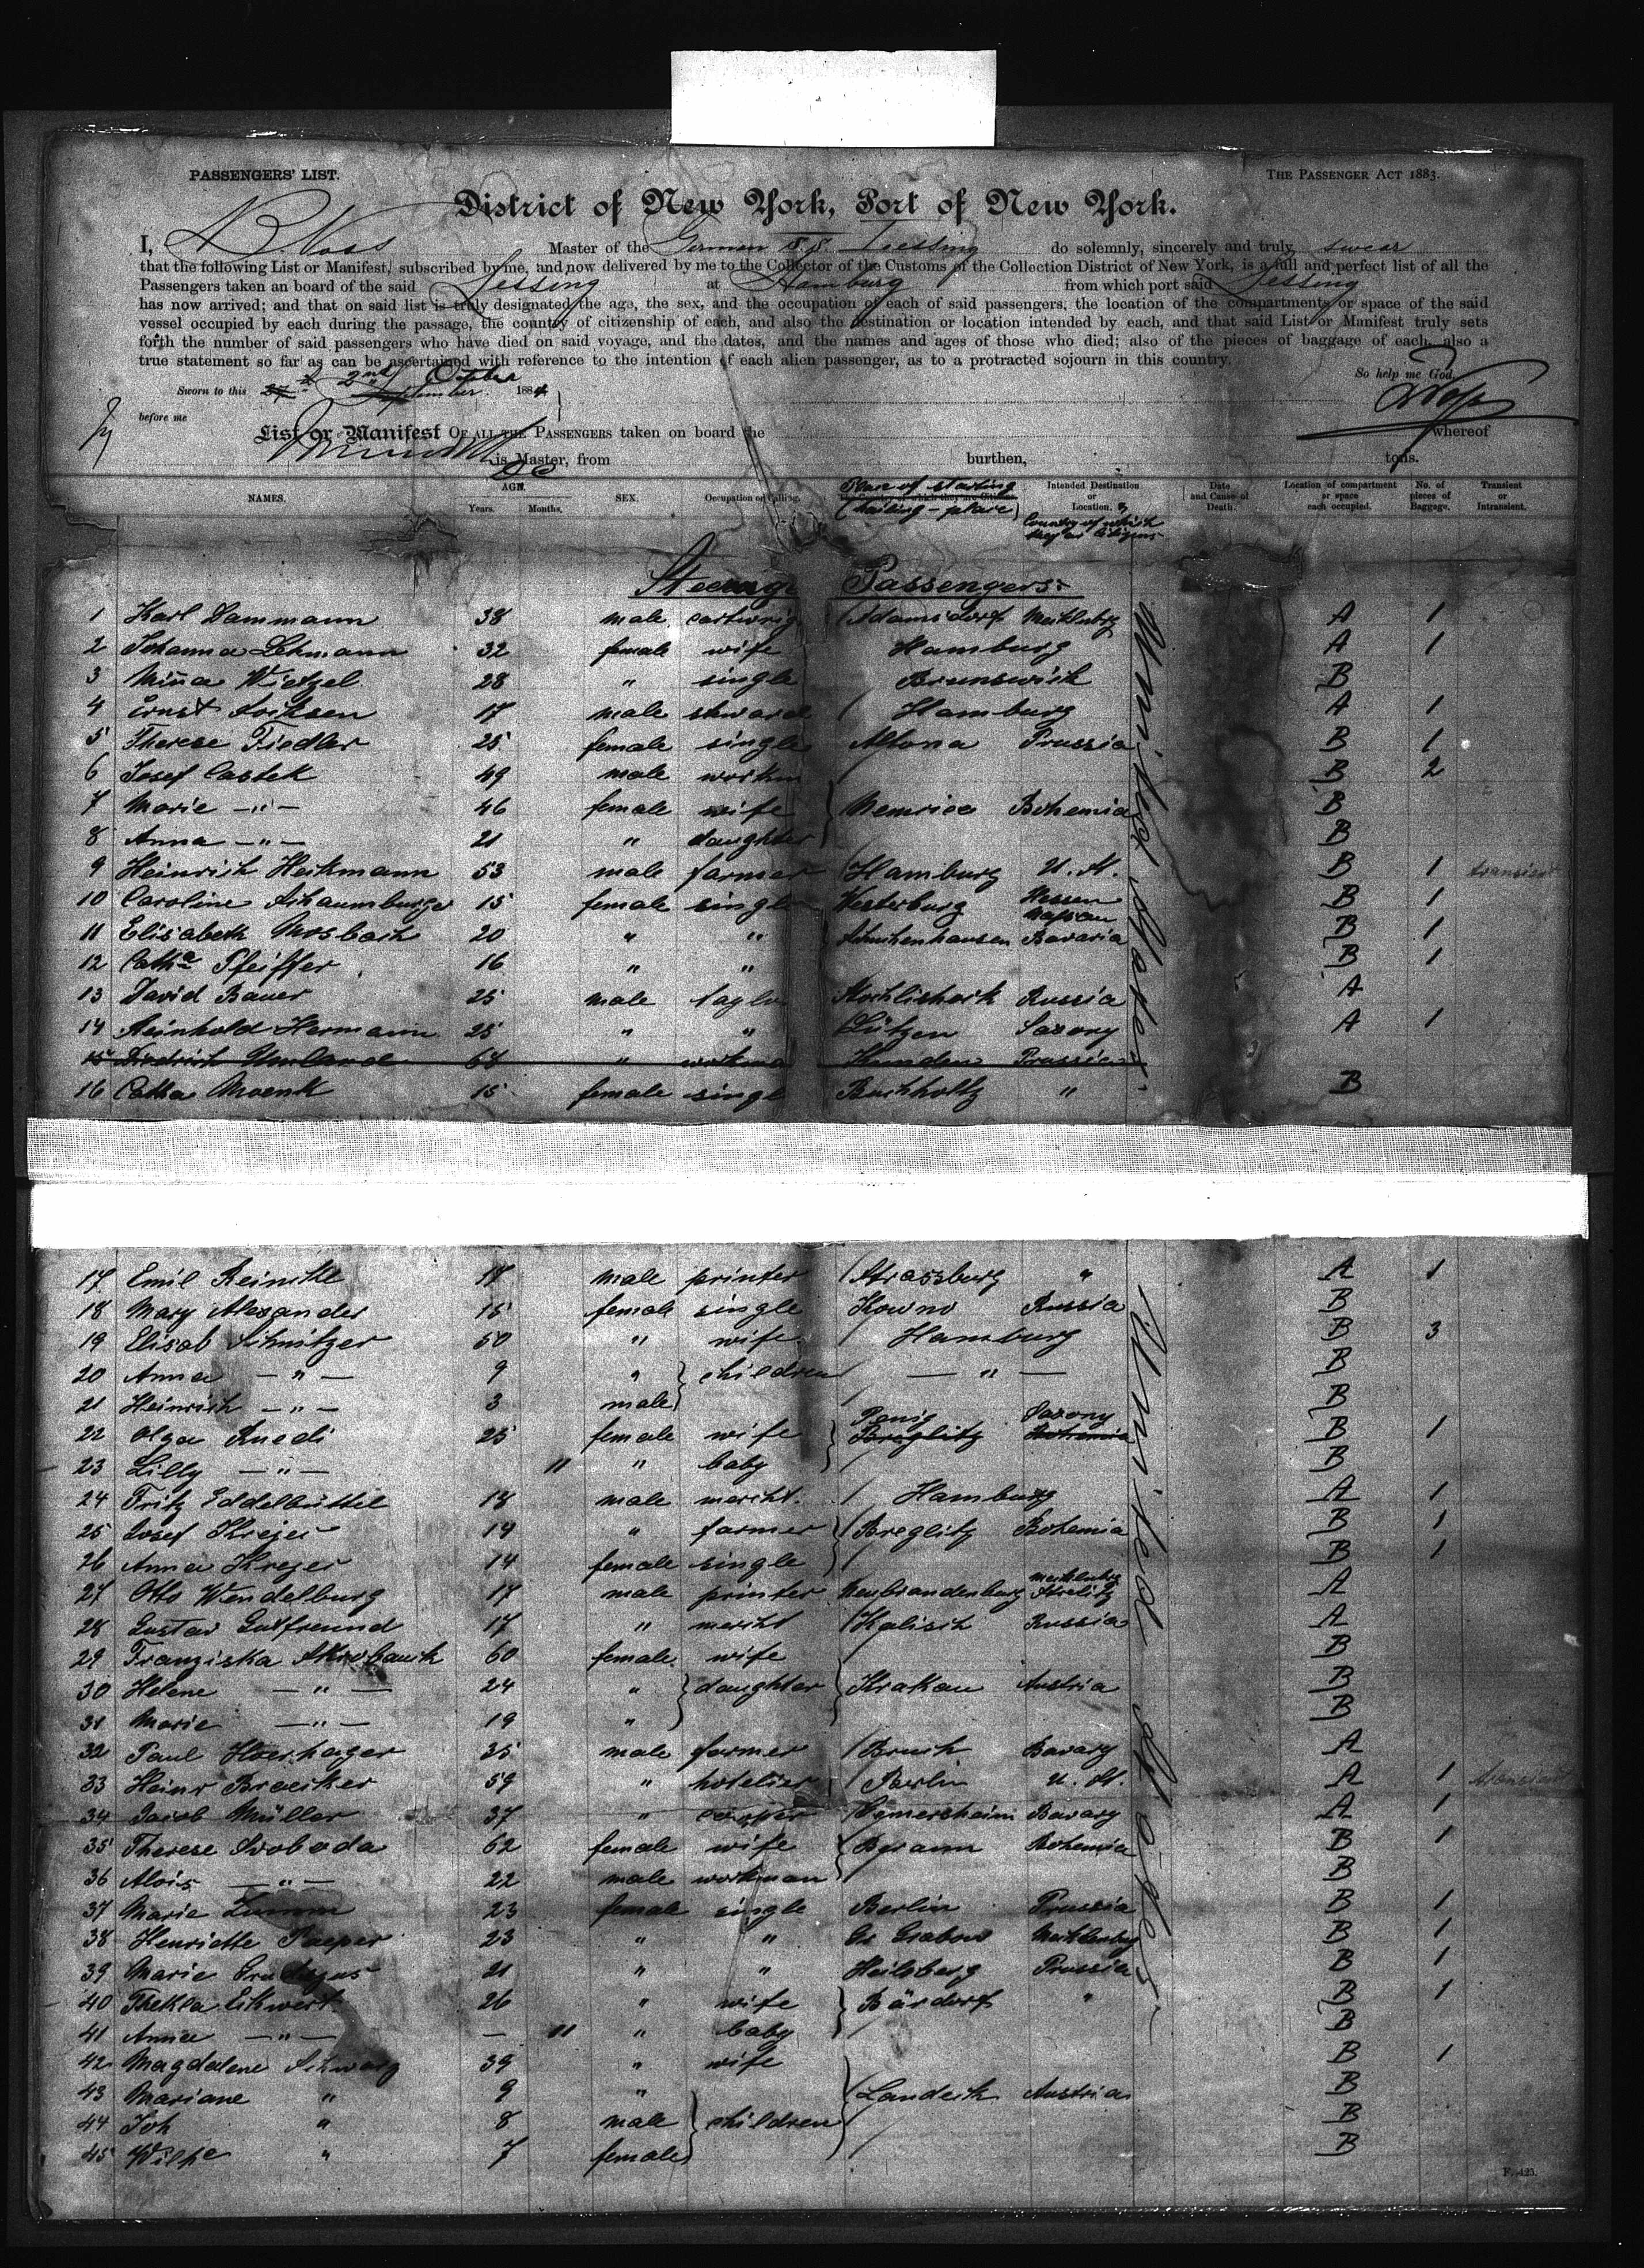 PASSENGERS' LIST.
THE PASSENGER ACT 1883.
District of New York, Port of New York.
I, D. Voss Master of the German S.S. Lessing do solemnly, sincerely and truly, swear
that the following List or Manifest, subscribed by me, and now delivered by me to the Collector of the Customs of the Collection District of New York, is a full and perfect list of all the
Passengers taken an board of the said Lessing at Hamburg from which port said Lessing
has now arrived; and that on said list is truly designated the age, the sex, and the occupation of each of said passengers, the location of the compartments or space of the said
vessel occupied by each during the passage, the country of citizenship of each, and also the destination or location intended by each, and that said List or Manifest truly sets
forth the number of said passengers who have died on said voyage, and the dates, and the names and ages of those who died; also of the pieces of baggage of each, also a
true statement so far as can be ascertained with reference to the intention of each alien passenger, as to a protracted sojourn in this country.
So help me God,
Sworn to this 27 2nd October September 1884
DVoss
before me
List or Manifest OF ALL THE PASSENGERS taken on board the whereof
is Master, from burthen, tons.
NAMES. AGE. Years. Months. SEX. Occupation or Calling. The Country of which they are Citizens. Place of starting (hailing-place) Intended Destination or Location. Country of which they are Citizens Date and Cause of Death. Location of compartment or space each occupied. No. of pieces of Baggage. Transient or Intransient.
Steerage Passengers:
1 Karl Dammann 38 male cartwrig Adamsdorf Mecklnbrg A 1
2 Johanna Lehmann 32 female wife Hamburg A 1
3 Minna Wietzel 28 " single Brunswick B
4 Ernst 17 male steward Hamburg A 1
5 Therese Fiedler 25 female single Altona Prussia B 1
6 Josef Castek 49 male workm B 2
7 Marie -"- 46 female wife Nemrice Bohemia B
8 Anna -"- 21 " daughter B
9 Heinrich Heitmann 53 male farmer Hamburg U. St. B 1 transient
10 Caroline Schaumburger 15 female single Westerburg Hessen Nassau B 1
11 Elisabeth Mosbach 20 " " Bavaria B 1
12 Catha Pfeiffer 16 " " B 1
13 David Bauer 25 male taylo Russia A
14 Reinhold Hermann 25 " " Lützen Saxony A 1
15 Friedrich 68 " workma Prussia
16 Catha Moenk 15 female singl Buchholtz " B
17 Emil Reinicke 17 male printer Strassburg " A 1
18 Mary Alexander 15 female single Kowno Russia B
19 Elisab Schnitzer 50 " wife Hamburg B 3
20 Anna -"- 9 " children -"- B
21 Heinrich -"- 3 male B
22 Olga Ruedi 25 female wife Penig Saxony Breglitz Bohemia B 1
23 Lilly -"- 11 " baby B
24 Fritz Eddelbüttel 18 male mercht. Hamburg A 1
25 Josef Krejei 19 " farmer Breglitz Bohemia B 1
26 Anna Krejei 14 female single B 1
27 Otto Wendelburg 17 male printer Neubrandenburg Mecklnbrg Strelitz A
28 Gustav Gutfreund 17 " mercht Kalisch Russia A
29 Franziska 60 female wife B
30 Helene -"- 24 " daughter Krakau Austria B
31 Marie -"- 19 " B
32 Paul 35 male farmer Bruch Bavary A
33 Heinr Broecker 59 " hotelier Berlin U. St. A 1 transient
34 Jacob Müller 37 " cooper Bavary A 1
35 Therese Svoboda 62 female wife Beraun Bohemia B 1
36 Alois -"- 22 male workman B
37 Marie 23 female single Berlin Prussia B 1
38 Henriette Paeper 23 " " Gr Grabow Mecklenbrg B 1
39 Marie 21 " " Heilsberg Prussia B 1
40 Thekla Eckwert 26 " wife Bärdorf " B 1
41 Anna -"- - 11 " baby B
42 Magdalene Schwarz 39 " wife B 1
43 Mariane " 9 " Landeck Austria B
44 Joh " 8 male children B
45 Wilhe " 7 female B
United States.
United States.
F. 423.